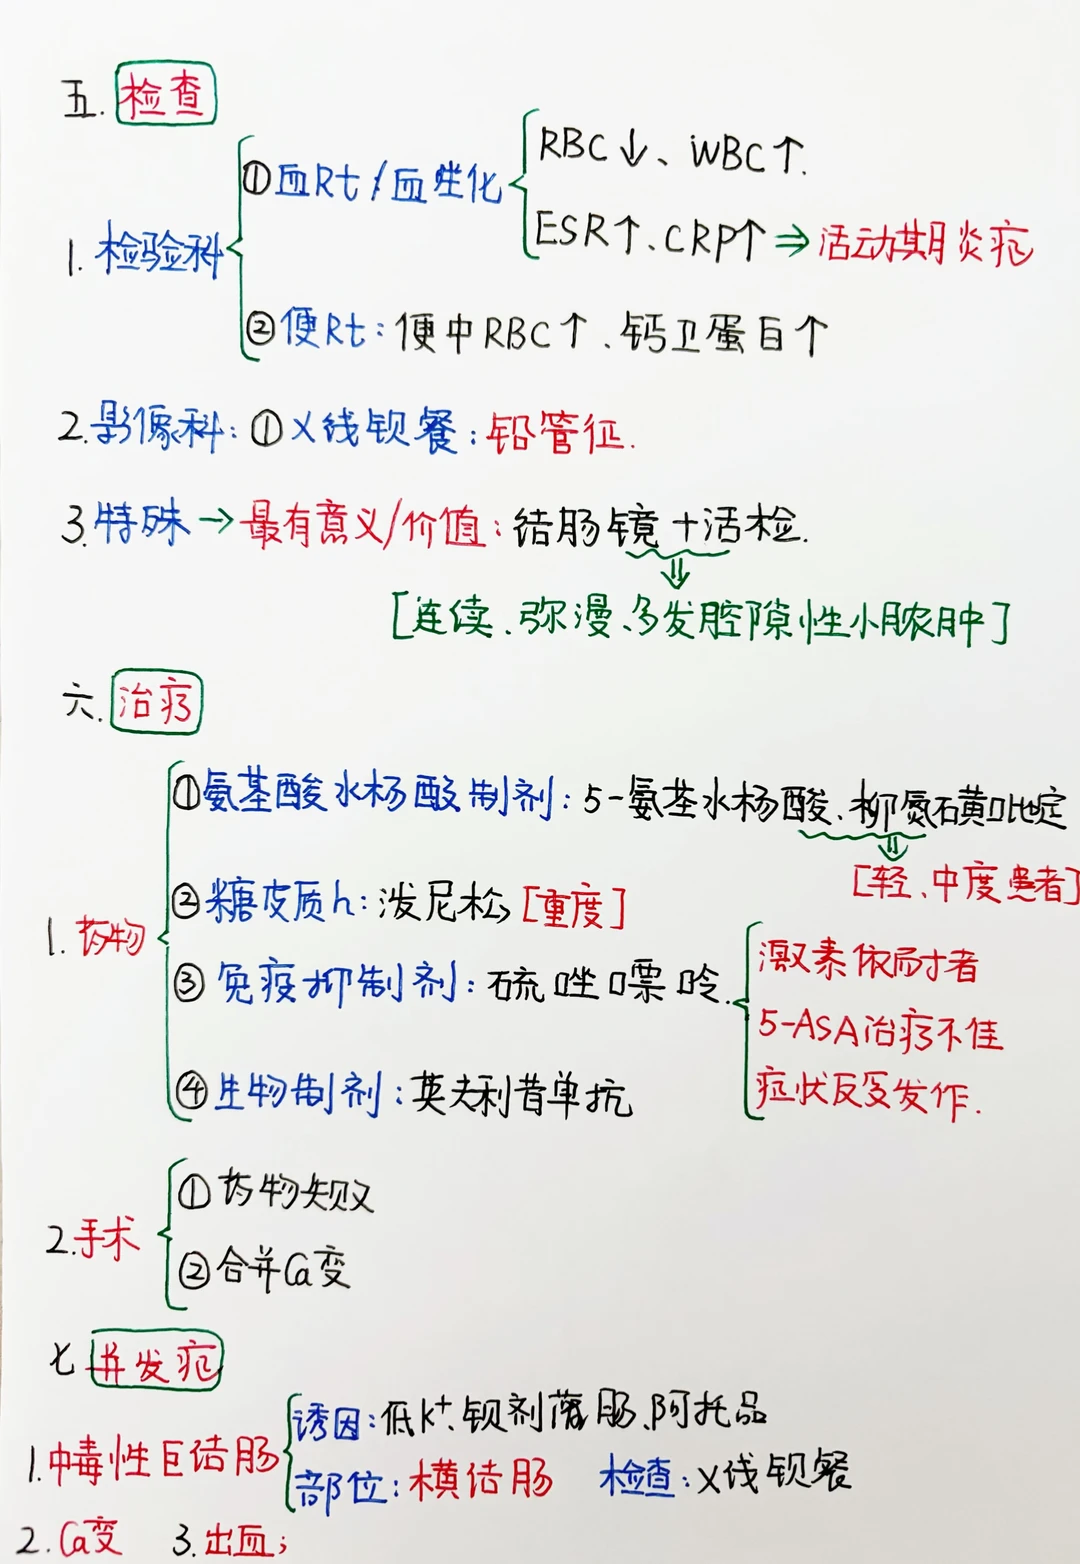 五.检查
RBC↓、WBC↑.
①血Rt/血生化
ESR↑、CRP↑⇒活动期炎症
1.检验科
②便Rt:便中RBC↑、钙卫蛋白个
2.影像科:①X线钡餐:铅管征.
3.特殊→最有意义/价值:结肠镜+活检.
⇓
[连续、弥漫、多发腔隙性小脓肿]
六.治疗
①氨基酸水杨酸制剂:5-氨基水杨酸、柳氮磺吡啶
⇓
[轻、中度患者]
②糖皮质h:泼尼松[重度]
1.药物
激素依耐者
③免疫抑制剂:硫唑嘌呤.
5-ASA治疗不佳
④生物制剂:英夫利昔单抗
症状反复发作.
①药物失败
2.手术
②合并Ca变
七 并发症
诱因:低K⁺、钡剂灌肠、阿托品
1.中毒性巨结肠
部位:横结肠 检查:X线钡餐
2.Ca变 3.出血;